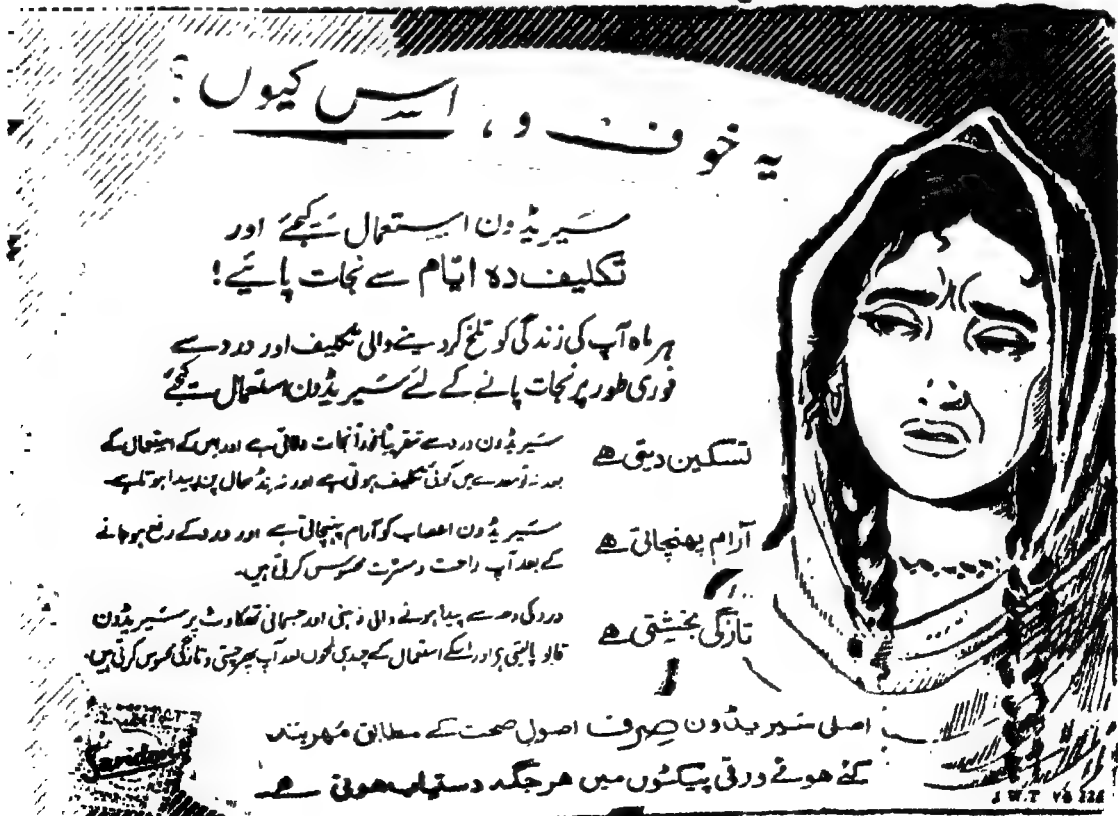 یہ خوف و ہراس کیوں؟
سَیریڈون استعمال کیجئے اور
تکلیف دہ ایّام سے نجات پائیے!
ہر ماہ آپ کی زندگی کو تلخ کر دینے والی تکلیف اور درد سے
فوری طور پر نجات پانے کے لئے سَیریڈون استعمال کیجئے
تسکین دیتی ہے
سَیریڈون درد سے تقریباً فوراً نجات دلاتی ہے اور اس کے استعمال کے
بعد نہ تو معدے میں کوئی تکلیف ہوتی ہے اور نہ نڈھال پن پیدا ہوتا ہے۔
آرام پہنچاتی ہے
سَیریڈون اعصاب کو آرام پہنچاتی ہے اور درد کے رفع ہو جانے
کے بعد آپ راحت و مسرّت محسوس کرتی ہیں۔
تازگی بخشتی ہے
درد کی وجہ سے پیدا ہونے والی ذہنی اور جسمانی تھکاوٹ پر سَیریڈون
قابو پالیتی ہے اور اسکے استعمال کے چند ہی لمحوں بعد آپ پھر چستی و تازگی محسوس کرتی ہیں۔
اصلی سَیریڈون صِرف اصولِ صحت کے مطابق مُہر بند
کئے ہوئے ورقی پیکٹوں میں ہر جگہ دستیاب ہوتی ہے۔
Saridon
J.W.T